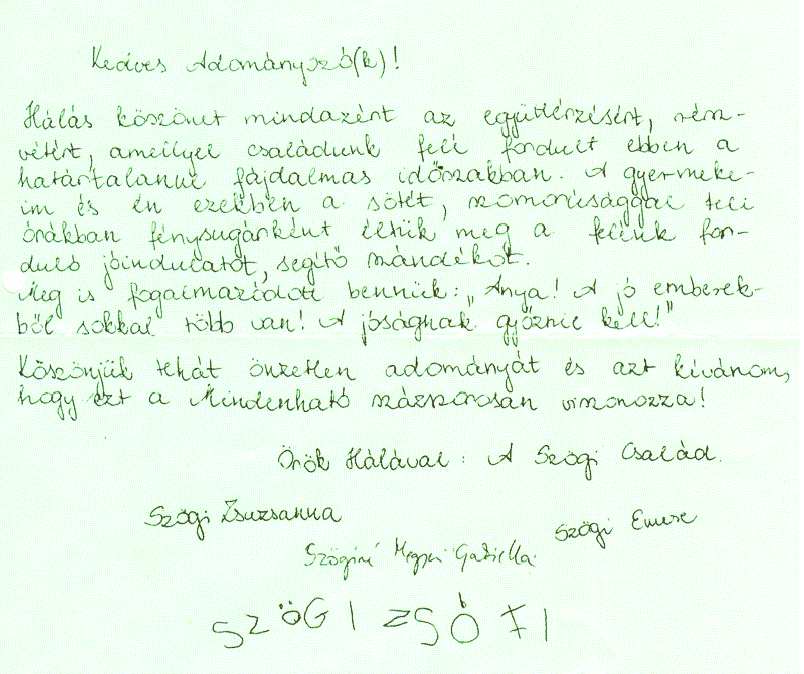 Kedves Adományozó(k)!
Hálás köszönet mindazért az együttérzésért, rész-
vétért, amellyel családunk felé fordult ebben a
határtalanul fájdalmas időszakban. A gyermeke-
im és én ezekben a sötét, szomorúsággal teli
órákban fénysugárként éltük meg a felénk for-
duló jóindulatot, segítő szándékot.
Meg is fogalmazódott bennük: „Anya! A jó emberek-
ből sokkal több van! A jóságnak győznie kell!"
Köszönjük tehát önzetlen adományát és azt kívánom,
hogy ezt a Mindenható százszorosan viszonozza!
Örök Hálával: A Szögi Család.
Szögi Zsuzsanna
Szögi Emese
Szögine Gabriella
SZÖGI ZSÓFI